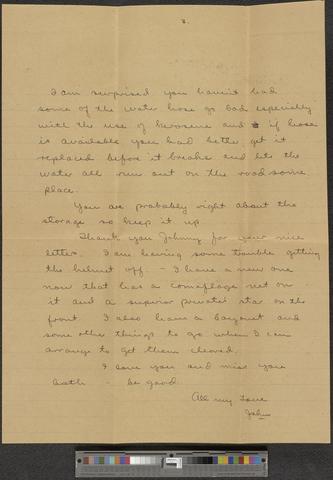 2.
I am surprised you haven't had
some of the water hose go bad especially
with the use of kerosene and if hose
is available you had better get it
replaced before it breaks and lets the
water all run out on the road some
place.
You are probably right about the
storage so keep it up.
Thank you Johnny for your nice
letter. I am having some trouble getting
the helmet off - I have a new one
now that has a comaflage net on
it and a superior private's star on the
front. I also have a bayonet and
some other things to go when I can
arrange to get them cleared.
I love you and miss you
both - be good.
All my love
John